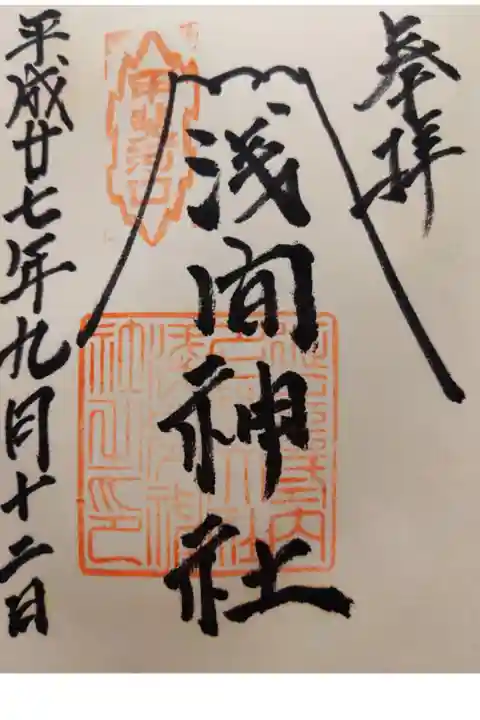 奉拝
浅間神社
平成廿七年九月十二日